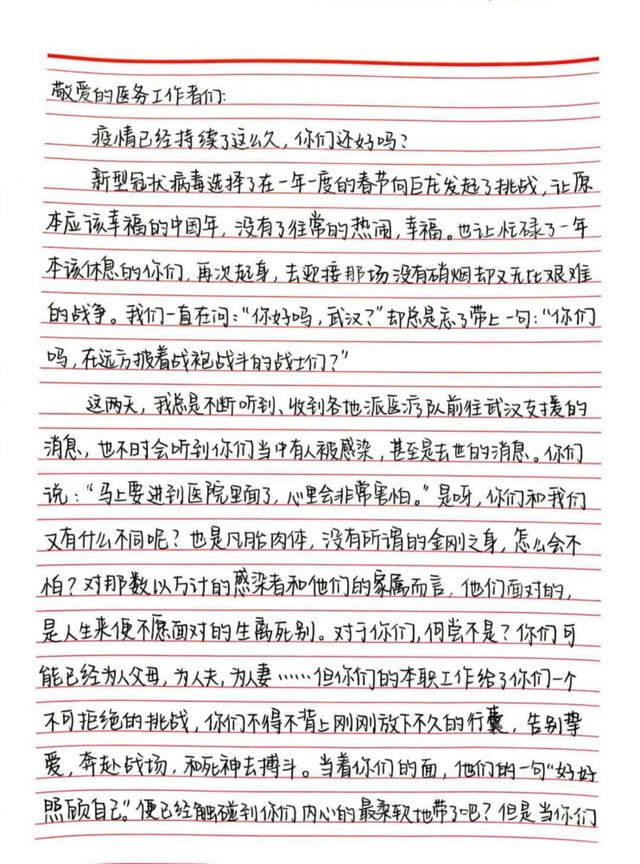 敬爱的医务工作者们:
疫情已经持续了这么久,你们还好吗?
新型冠状病毒选择了在一年一度的春节向巨龙发起了挑战,让原
本应该幸福的中国年,没有了往常的热闹,幸福。也让忙碌了一年
本该休息的你们,再次起身,去迎接那场没有硝烟却又无比艰难
的战争。我们一直在问:“你好吗,武汉?”却总是忘了带上一句:“你们
吗,在远方披着战袍战斗的战士们?”
这两天,我总是不断听到、收到各地派医疗队前往武汉支援的
消息,也不时会听到你们当中有人被感染,甚至是去世的消息。你们
说:“马上要进到医院里面了,心里会非常害怕。”是呀,你们和我们
又有什么不同呢?也是凡胎肉体,没有所谓的金刚之身,怎么会不
怕?对那数以万计的感染者和他们的家属而言,他们面对的,
是人生来便不愿面对的生离死别。对于你们,何尝不是?你们可
能已经为人父母,为人夫,为人妻……但你们的本职工作给了你们一个
不可拒绝的挑战,你们不得不背上刚刚放下不久的行囊,告别挚
爱,奔赴战场,和死神去搏斗。当着你们的面,他们的一句“好好
照顾自己”便已经触碰到你们内心的最柔软地带了吧?但是当你们